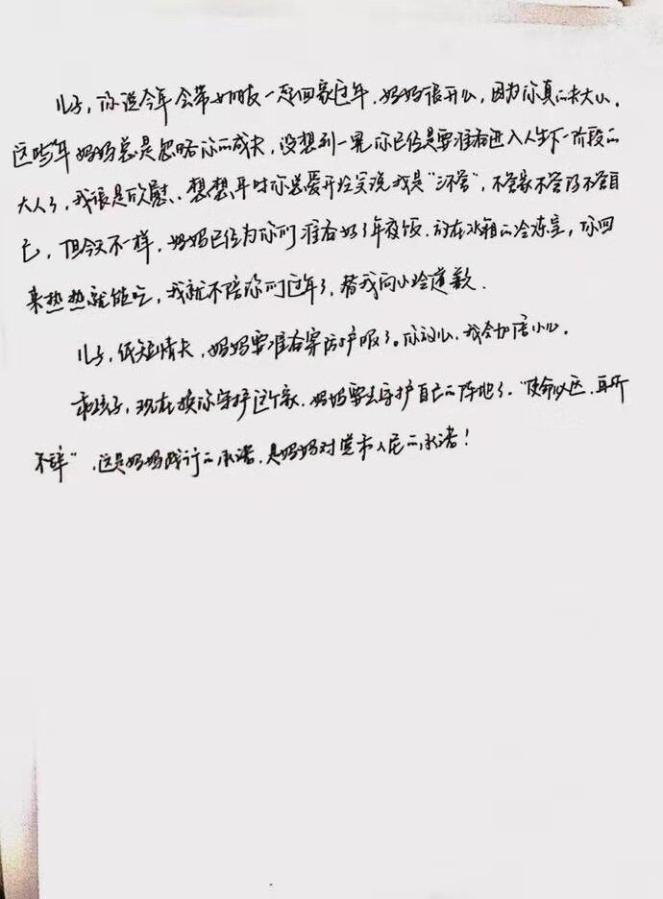 儿子，你说今年会带女朋友一起回家过年，妈妈很开心，因为你真的长大了。
这些年妈妈总是忽略你的成长，没想到一晃你已经是要准备进入人生下一阶段的
大人了，我很是欣慰。想想平时你总爱开玩笑说我是“三不管”，不管家不管你不管自
己，但今天不一样，妈妈已经为你们准备好了年夜饭，放在冰箱的冷冻室，你回
来热热就能吃，我就不陪你们过年了，替我向小玲道歉。
儿子，纸短情长，妈妈要准备穿防护服了。你放心，我会加倍小心。
孩子，现在换你守护这个家，妈妈要去守护自己的阵地了，“使命必达，在所
不辞”，这是妈妈践行的承诺，是妈妈对党和人民的承诺！